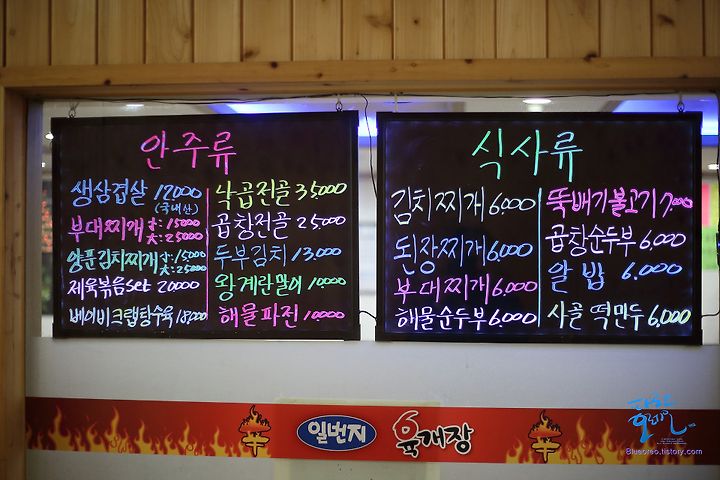 안주류
생삼겹살 12000
(국내산)
부대찌개 小:15000
大:25000
양푼김치찌개 小:15000
大:25000
제육볶음set 20000
베이비크랩탕수육 18000
낙곱전골 35,000
곱창전골 25,000
두부김치 13,000
왕계란말이 10,000
해물파전 10,000
식사류
김치찌개 6,000
된장찌개 6,000
부대찌개 6,000
해물순두부 6,000
뚝배기불고기 7,000
곱창순두부 6,000
알밥 6,000
사골떡만두 6,000
일번지 육개장
Blueoreo.tistory.com